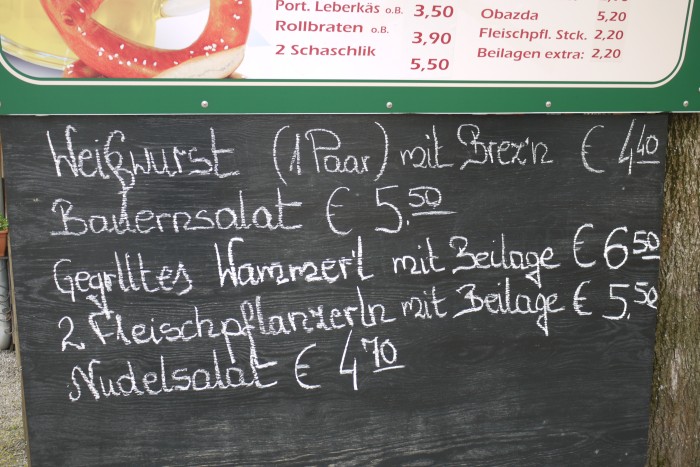 Port. Leberkäs o.B. 3,50
Rollbraten o.B. 3,90
2 Schaschlik 5,50
Obazda 5,20
Fleischpfl. Stck. 2,20
Beilagen extra: 2,20
Weißwurst (1 Paar) mit Brez'n € 4,40
Bauernsalat € 5.50
Gegrlltes Wammer'l mit Beilage € 6 50
2 Fleischpflanzerln mit Beilage € 5,50
Nudelsalat € 4 70